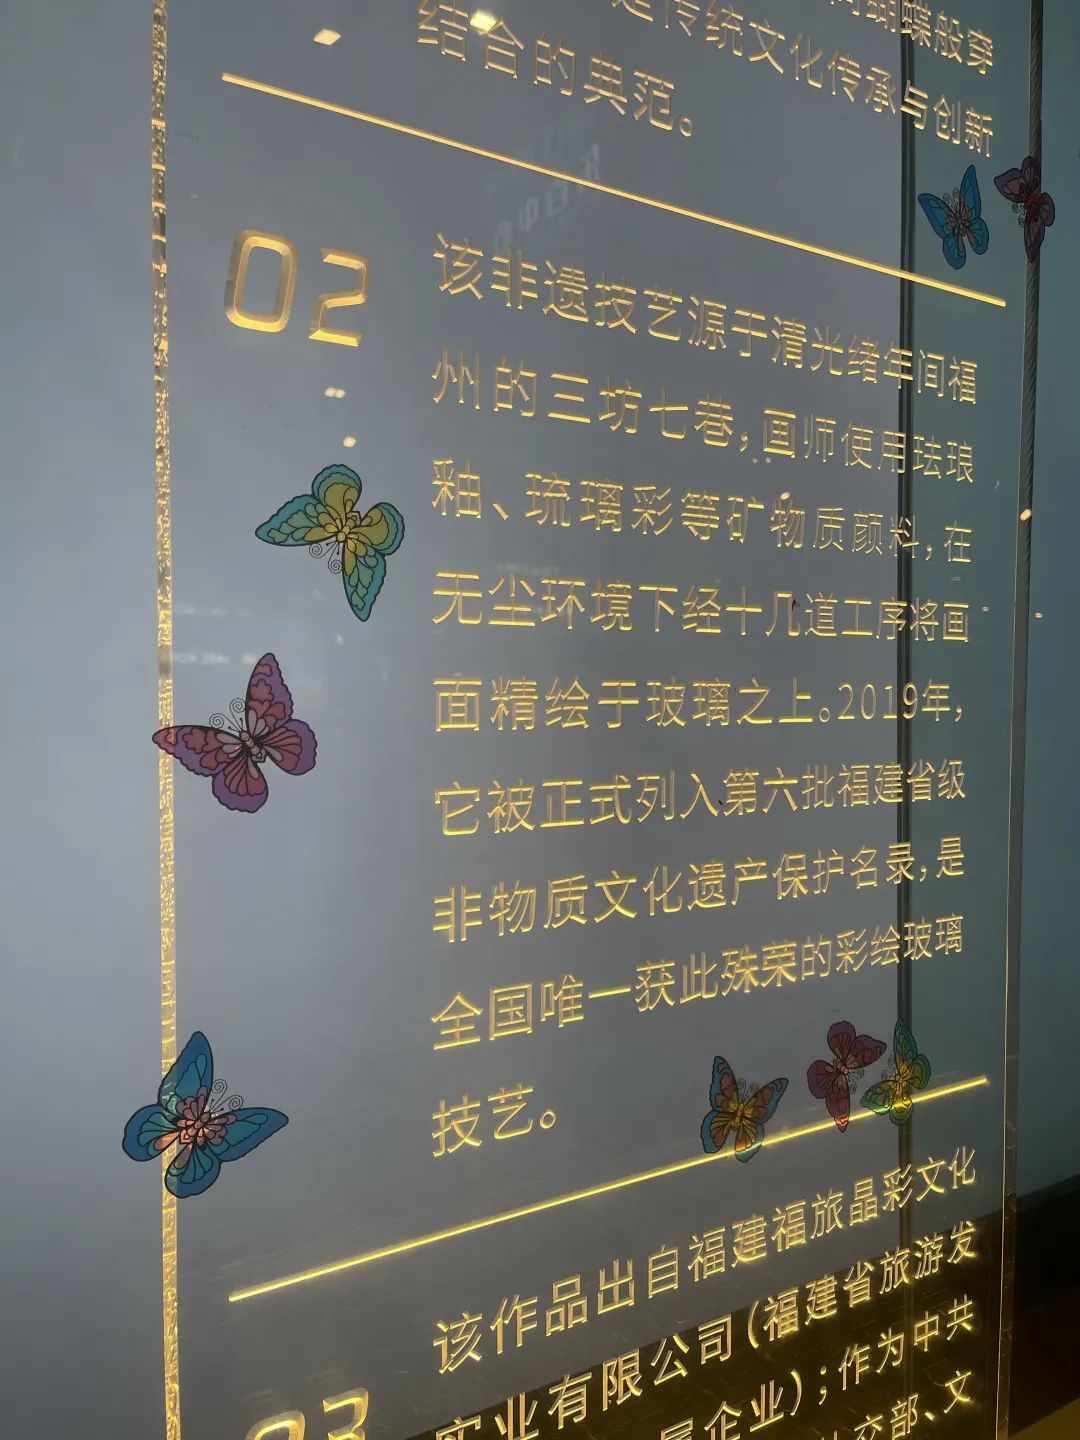 蝴蝶般穿
传统文化传承与创新
结合的典范。
02
该非遗技艺源于清光绪年间福
州的三坊七巷，画师使用珐琅
釉、琉璃彩等矿物质颜料，在
无尘环境下经十几道工序将画
面精绘于玻璃之上。2019年，
它被正式列入第六批福建省级
非物质文化遗产保护名录，是
全国唯一获此殊荣的彩绘玻璃
技艺。
03
该作品出自福建福旅晶彩文化
实业有限公司（福建省旅游发
属企业）；作为中共
交部、文